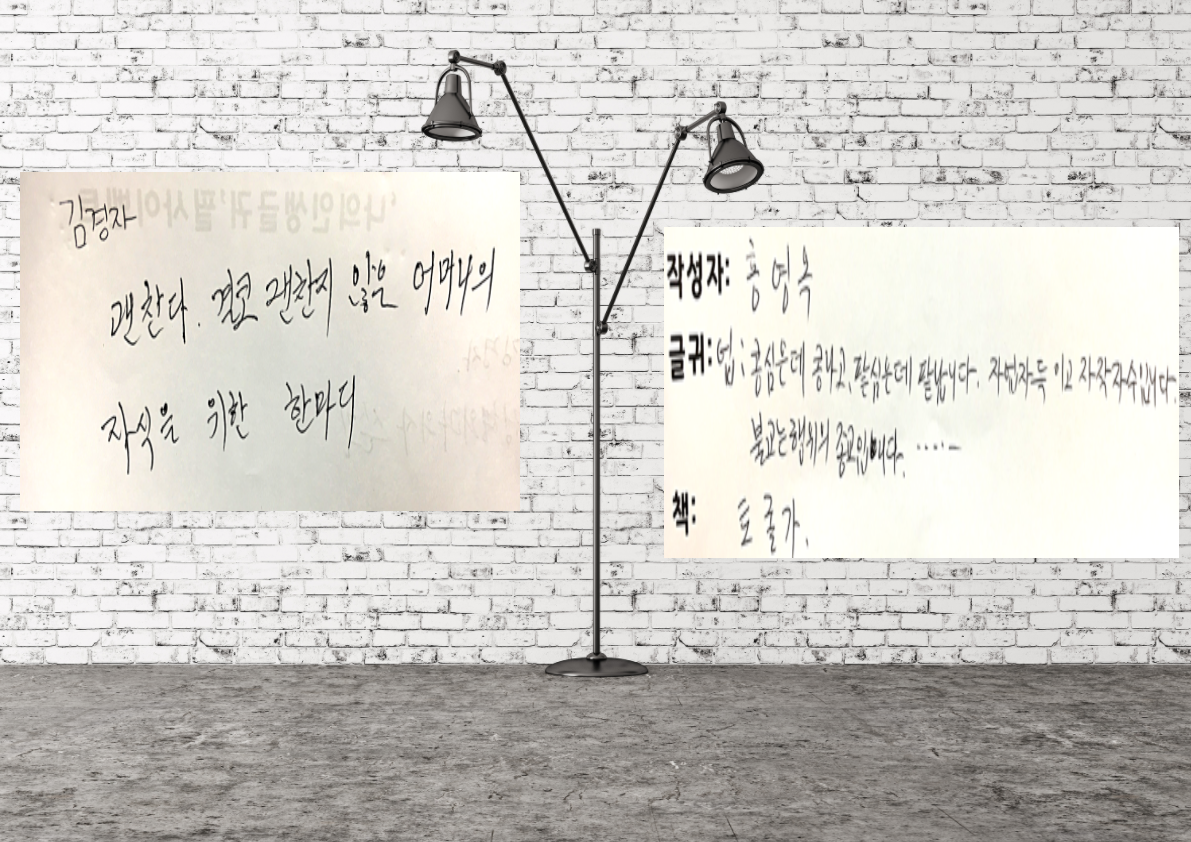 김경자
괜찮다. 결코 괜찮지 않은 어머니의
자식을 위한 한마디
작성자: 홍영옥
글귀: 법; 콩심은데 콩나고, 팥심는데 팥납니다. 자업자득 이고 자작자수입니다.
불교는 행위의 종교입니다. ……
책: 토굴가.